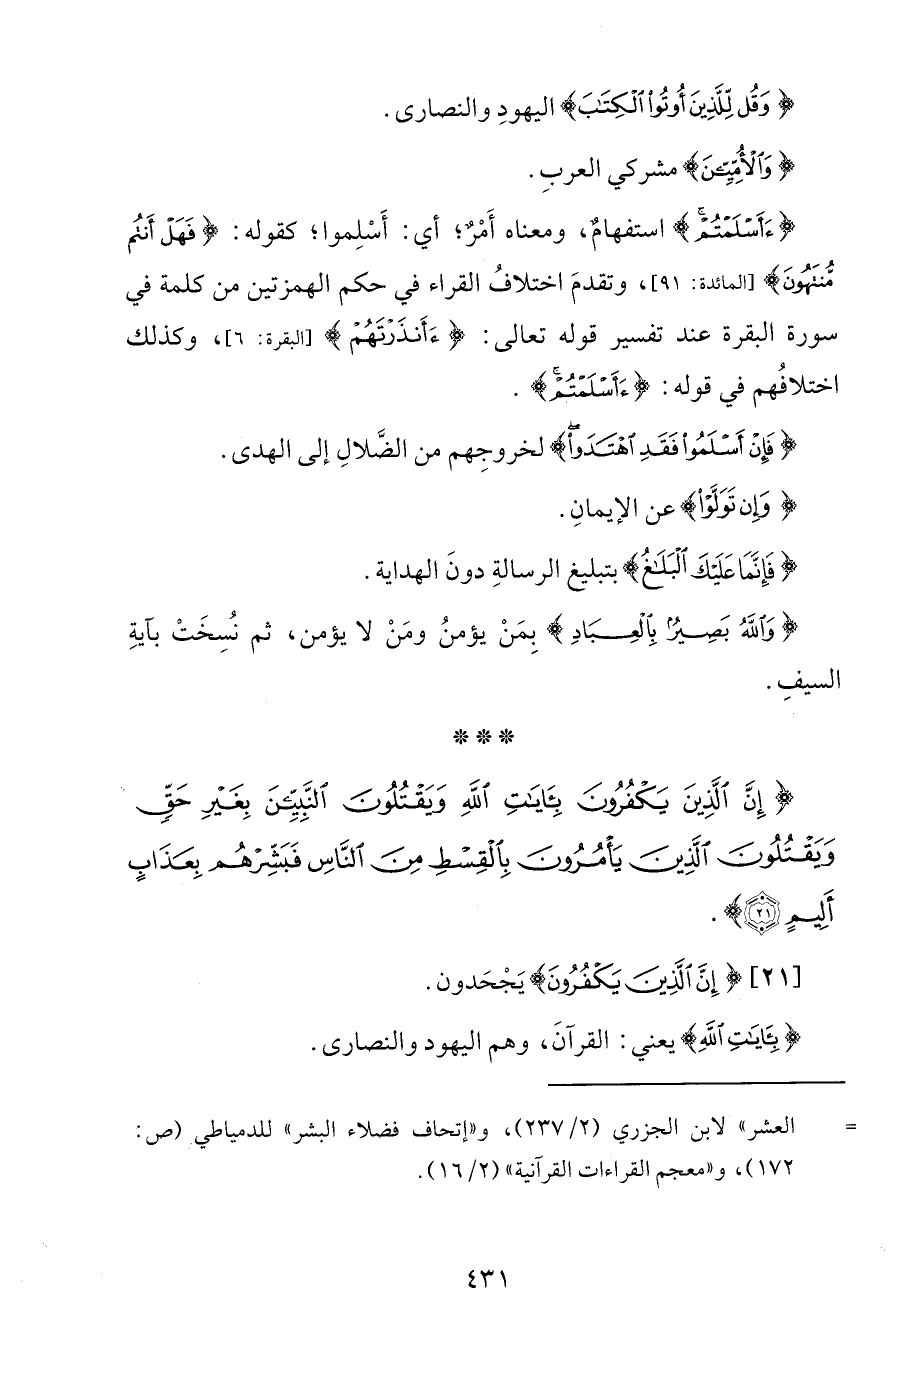 ﴿ وَقُل لِّلَّذِينَ أُوتُوا۟ ٱلْكِتَٰبَ﴾ اليهودِ والنصارى.
﴿ وَٱلْأُمِّيِّـۧنَ﴾ مشركي العربِ.
﴿ ءَأَسْلَمْتُمْۚ﴾ استفهامٌ، ومعناه أَمْرٌ؛ أي: أَسْلِموا؛ كقوله: ﴿ فَهَلْ أَنتُم
مُّنتَهُونَ﴾ [المائدة: ٩١]، وتقدمَ اختلافُ القراء في حكم الهمزتين من كلمة في
سورة البقرة عند تفسير قوله تعالى: ﴿ ءَأَنذَرْتَهُمْ ﴾ [البقرة: ٦]، وكذلك
اختلافُهم في قوله: ﴿ءَأَسْلَمْتُمْۚ﴾ .
﴿ فَإِنْ أَسْلَمُوا۟ فَقَدِ ٱهْتَدَوا۟ۖ﴾ لخروجِهم من الضَّلالِ إلى الهدى.
﴿ وَإِن تَوَلَّوْا۟﴾ عن الإيمانِ.
﴿ فَإِنَّمَا عَلَيْكَ ٱلْبَلَٰغُ﴾ بتبليغِ الرسالةِ دونَ الهداية.
﴿ وَٱللَّهُ بَصِيرٌۢ بِٱلْعِبَادِ ﴾ بِمَنْ يؤمنُ ومَنْ لا يؤمن، ثم نُسِخَتْ بآيةِ
السيفِ.
* * *
﴿ إِنَّ ٱلَّذِينَ يَكْفُرُونَ بِـَٔايَٰتِ ٱللَّهِ وَيَقْتُلُونَ ٱلنَّبِيِّـۧنَ بِغَيْرِ حَقٍّ
وَيَقْتُلُونَ ٱلَّذِينَ يَأْمُرُونَ بِٱلْقِسْطِ مِنَ ٱلنَّاسِ فَبَشِّرْهُم بِعَذَابٍ
أَلِيمٍ ٢١﴾ .
[٢١] ﴿ إِنَّ ٱلَّذِينَ يَكْفُرُونَ﴾ يَجْحَدون.
﴿ بِـَٔايَٰتِ ٱللَّهِ﴾ يعني: القرآنَ، وهم اليهود والنصارى.
= العشر» لابن الجزري (٢/ ٢٣٧)، و«إتحاف فضلاء البشر» للدمياطي (ص:
١٧٢)، و«معجم القراءات القرآنية» (٢/ ١٦).
٤٣١